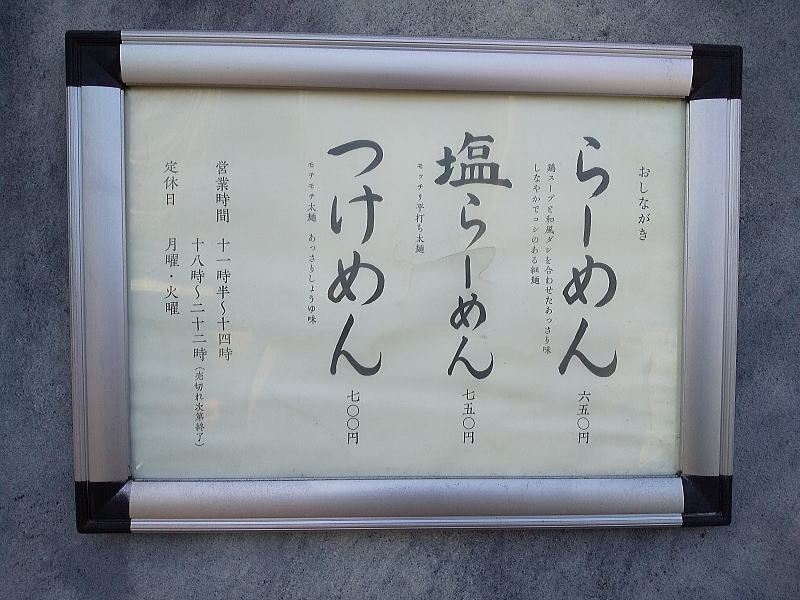 おしながき
らーめん 六五〇円
鶏スープと和風ダシを合わせたあっさり味
しなやかでコシのある細麺
塩らーめん 七五〇円
モッチリ平打ち太麺
つけめん 七〇〇円
モチモチ太麺 あっさりしょうゆ味
営業時間 十一時半〜十四時
十八時〜二十二時(売切れ次第終了)
定休日 月曜・火曜